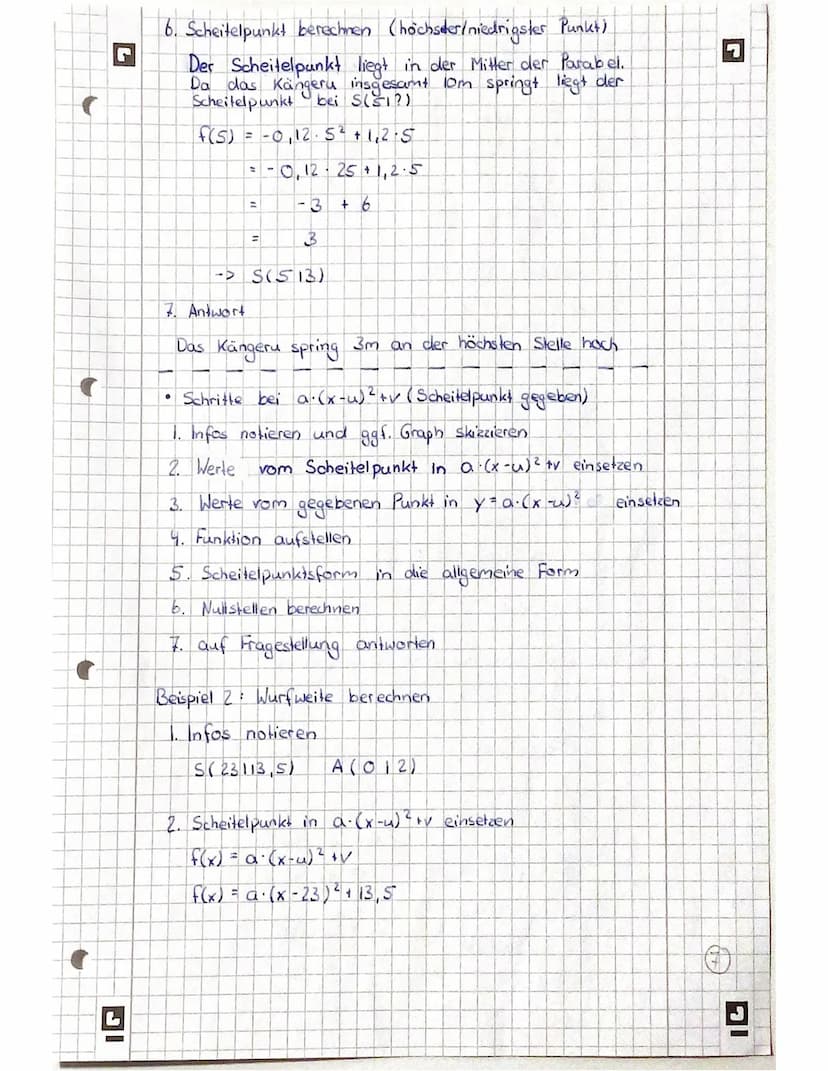 6. Scheitelpunkt berechnen (höchster/niedrigster Punkt)
Der Scheitelpunkt liegt in der Mitter der Parabel.
Da das Kängeru insgesamt 10m springt liegt der
Scheitelpunkt bei S(5|?)
f(5) = -0,12 · 5² + 1,2 · 5
= -0,12 · 25 + 1,2 · 5
= -3 + 6
= 3
-> S(5|3)
7. Antwort
Das Kängeru spring 3m an der höchsten Stelle hoch
• Schritte bei a·(x-u)²+v (Scheitelpunkt gegeben)
1. Infos notieren und ggf. Graph skizzieren
2. Werte vom Scheitelpunkt in a·(x-u)²+v einsetzen
3. Werte vom gegebenen Punkt in y=a·(x-u)² einsetzen
4. Funktion aufstellen
5. Scheitelpunktsform in die allgemeine Form
6. Nullstellen berechnen
7. auf Fragestellung antworten
Beispiel 2: Wurfweite berechnen
1. Infos notieren
S(23|13,5) A(0|2)
2. Scheitelpunkt in a·(x-u)²+v einsetzen
f(x) = a·(x-u)²+v
f(x) = a·(x-23)²+13,5
7